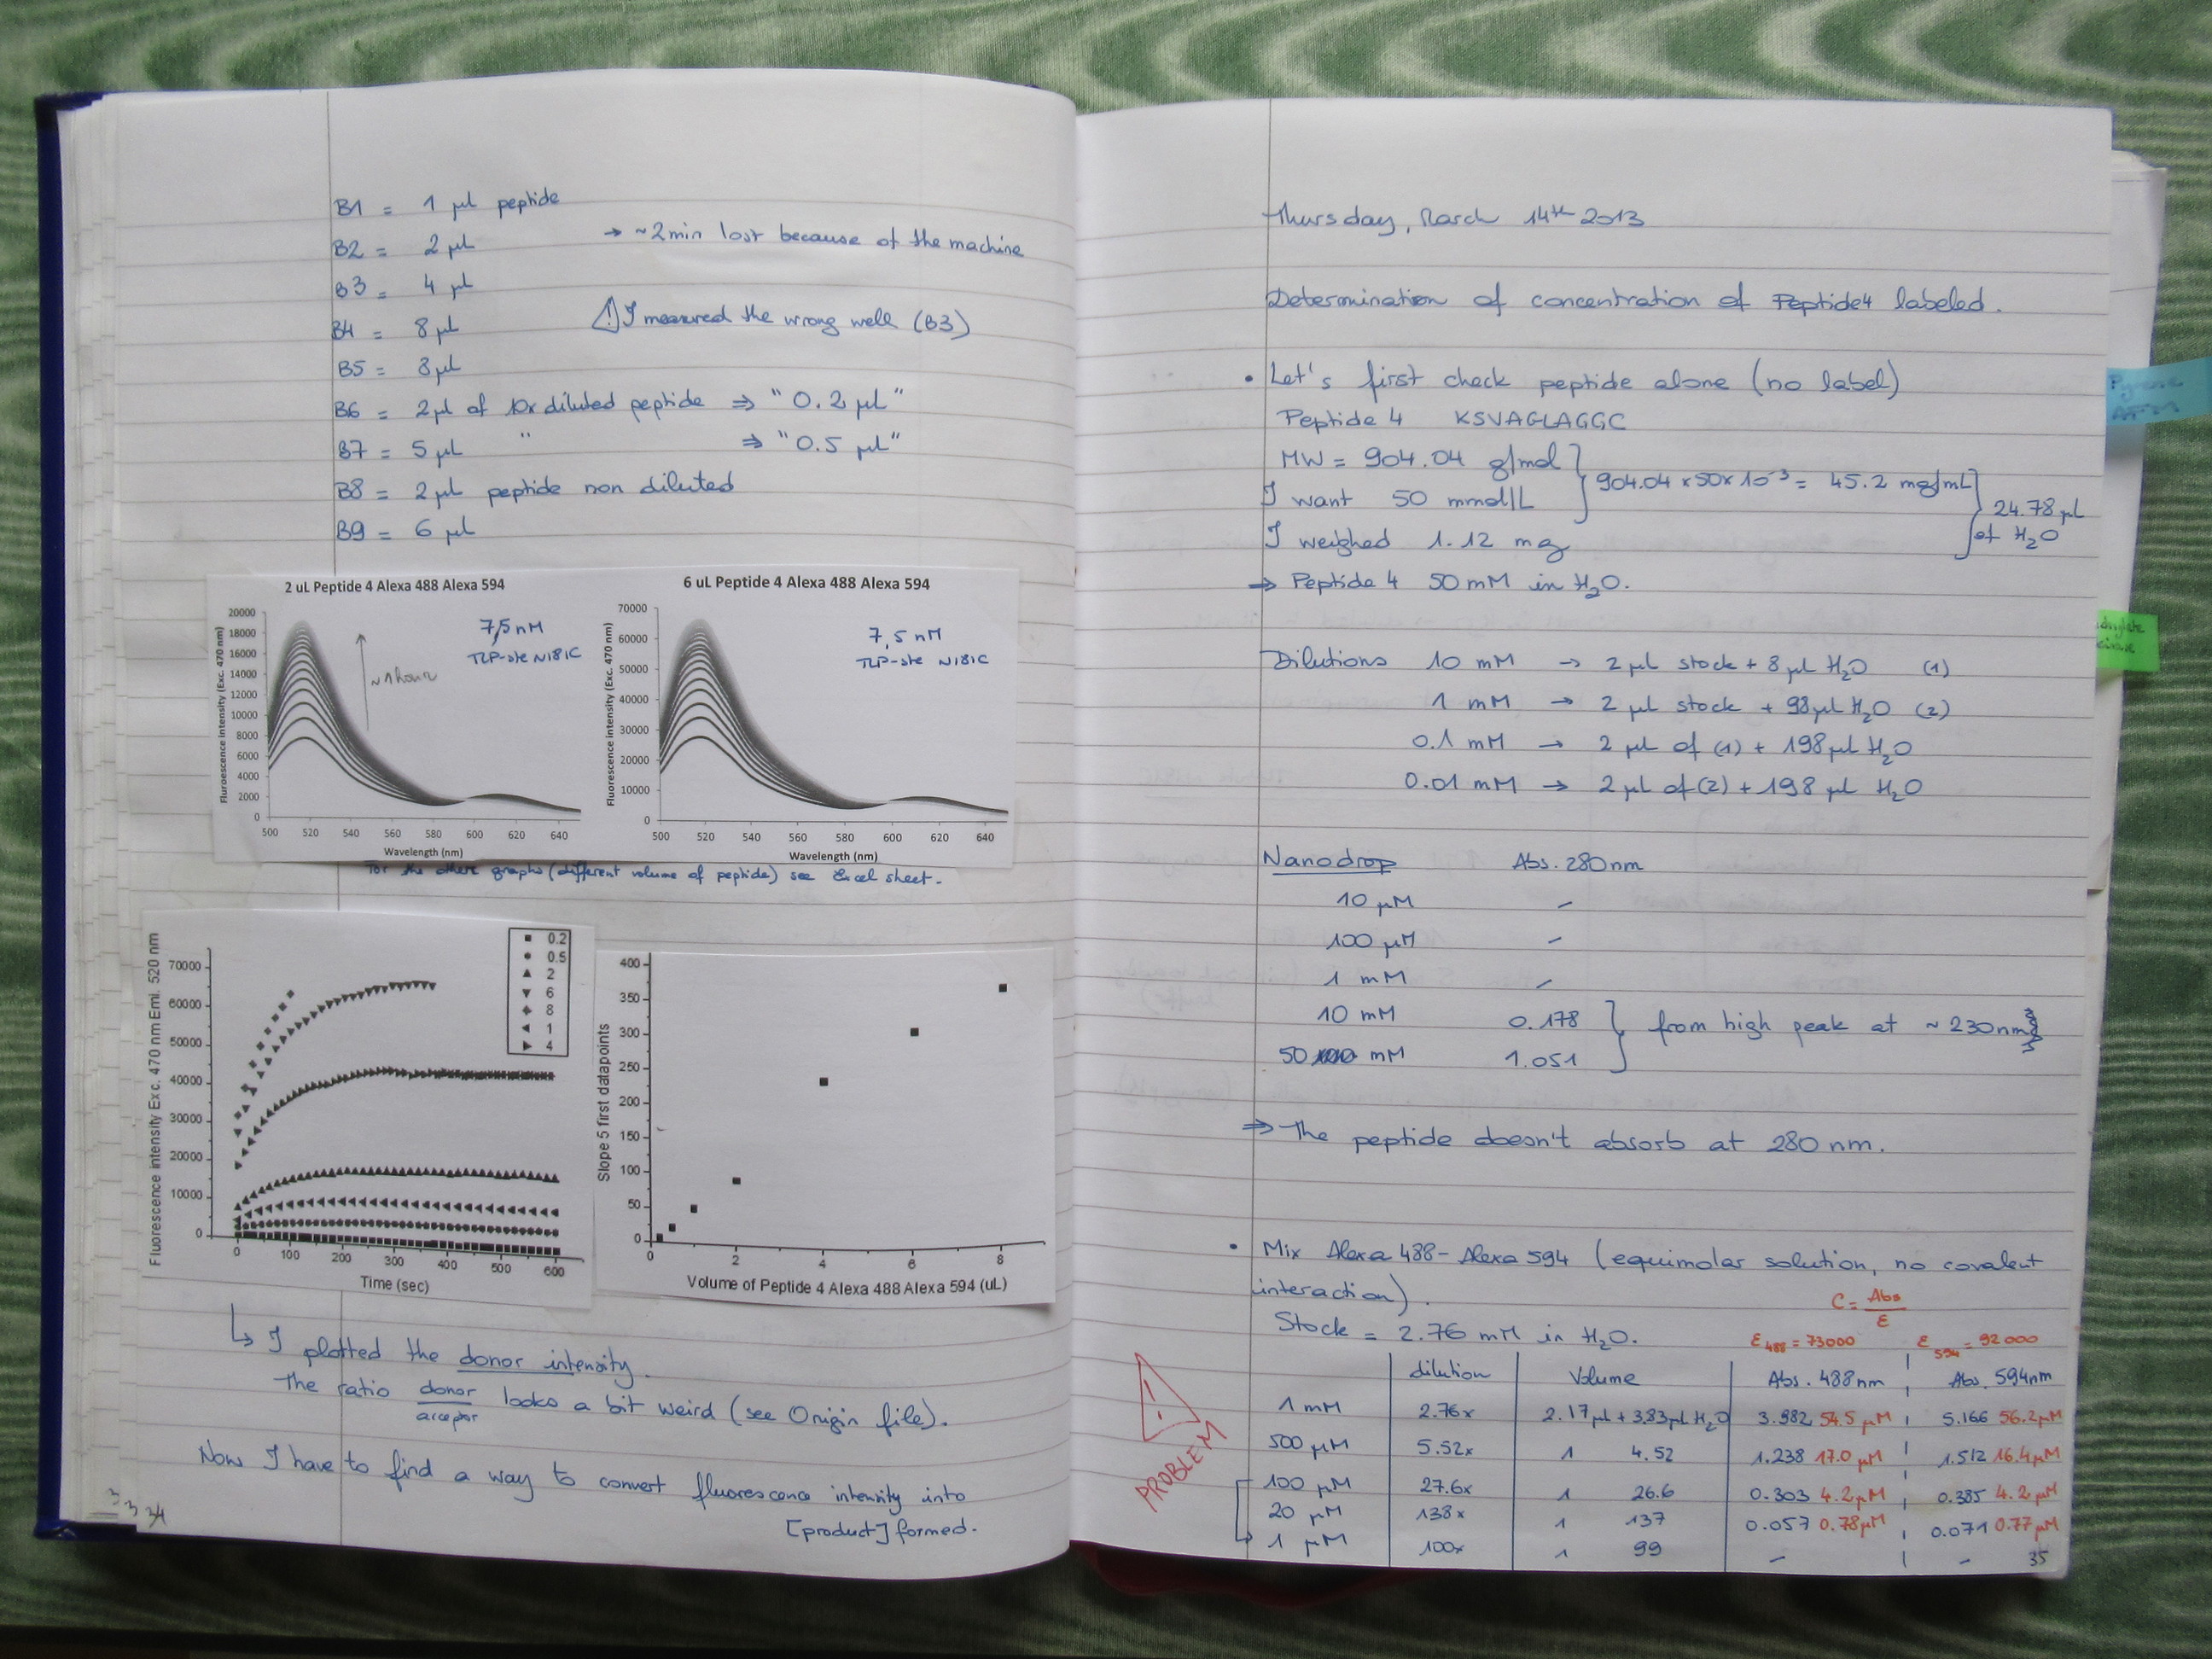 B1 = 1 µl peptide
B2 = 2 µl → ~2min lost because of the machine
B3 = 4 µl
B4 = 8 µl ⚠ I measured the wrong well (B3)
B5 = 8 µl
B6 = 2µl of 10x diluted peptide ⇒ "0.2 µL"
B7 = 5 µl " ⇒ "0.5 µL"
B8 = 2µl peptide non diluted
B9 = 6 µl
2 uL Peptide 4 Alexa 488 Alexa 594
Fluroescence intensity (Exc. 470 nm)
20000
18000
16000
14000
12000
10000
8000
6000
4000
2000
0
500 520 540 560 580 600 620 640
Wavelength (nm)
7,5 nM
TLP-ste N181C
~1hour
6 uL Peptide 4 Alexa 488 Alexa 594
Fluorescence intensity (Exc. 470 nm)
70000
60000
50000
40000
30000
20000
10000
0
500 520 540 560 580 600 620 640
Wavelength (nm)
7,5 nM
TLP-ste N181C
For the other graphs (different volume of peptide) see Excel sheet.
Fluorescence intensity Exc. 470 nm Emi. 520 nm
70000
60000
50000
40000
30000
20000
10000
0
0 100 200 300 400 500 600
Time (sec)
0.2
0.5
2
6
8
1
4
Slope 5 first datapoints
400
350
300
250
200
150
100
50
0
0 2 4 6 8
Volume of Peptide 4 Alexa 488 Alexa 594 (uL)
↳ I plotted the donor intensity.
The ratio donor/acceptor looks a bit weird (see Origin file).
Now I have to find a way to convert fluorescence intensity into
[product] formed.
34
Thursday, March 14th 2013
Determination of concentration of Peptide4 labeled.
• Let's first check peptide alone (no label)
Peptide 4 KSVAGLAGGC
MW = 904.04 g/mol
I want 50 mmol/L } 904.04 x 50 x 10⁻³ = 45.2 mg/mL
I weighed 1.12 mg } 24.78 µl of H₂O
⇒ Peptide 4 50 mM in H₂O.
Dilutions 10 mM → 2 µl stock + 8 µl H₂O (1)
1 mM → 2 µl stock + 98µl H₂O (2)
0.1 mM → 2 µl of (1) + 198µl H₂O
0.01 mM → 2 µl of (2) + 198 µl H₂O
Nanodrop Abs. 280nm
10 µM –
100 µM –
1 mM –
10 mM 0.178
50 mM 1.051 } from high peak at ~230nm
⇒ The peptide doesn't absorb at 280 nm.
• Mix Alexa 488 - Alexa 594 (equimolar solution, no covalent
interaction).
C = Abs/ε
Stock = 2.76 mM in H₂O. ε488 = 73000 ε594 = 92000
dilution Volume Abs. 488nm Abs. 594nm
1 mM 2.76x 2.17µl + 3.83µl H₂O 3.982 54.5 µM 5.166 56.2µM
500 µM 5.52x 1 4.52 1.238 17.0 µM 1.512 16.4µM
100 µM 27.6x 1 26.6 0.303 4.2µM 0.385 4.2µM
20 µM 138x 1 137 0.057 0.78µM 0.071 0.77µM
1 µM 100x 1 99 – –
PROBLEM
35